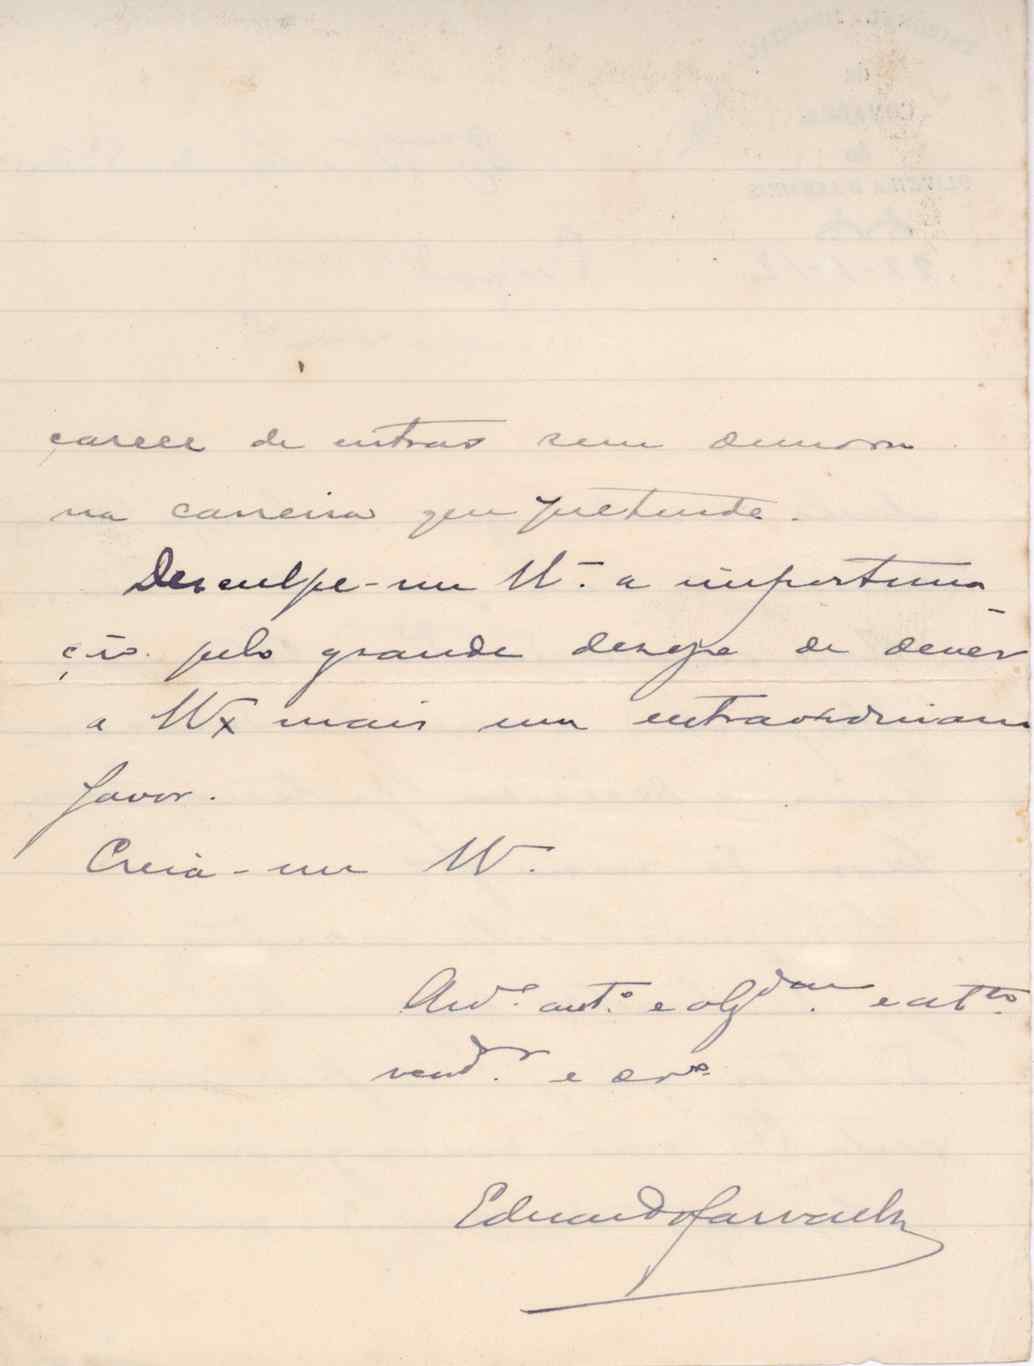 carece de entrar sem demora
na carreira que pretende.
Desculpe-me V. a importuna
ção pelo grande desejo de dever
a V. mais um extraordinario
favor.
Creia-me V.
Am.º ant.º e obg.dm e att.to
ven.dr e
Eduardo Carvalho